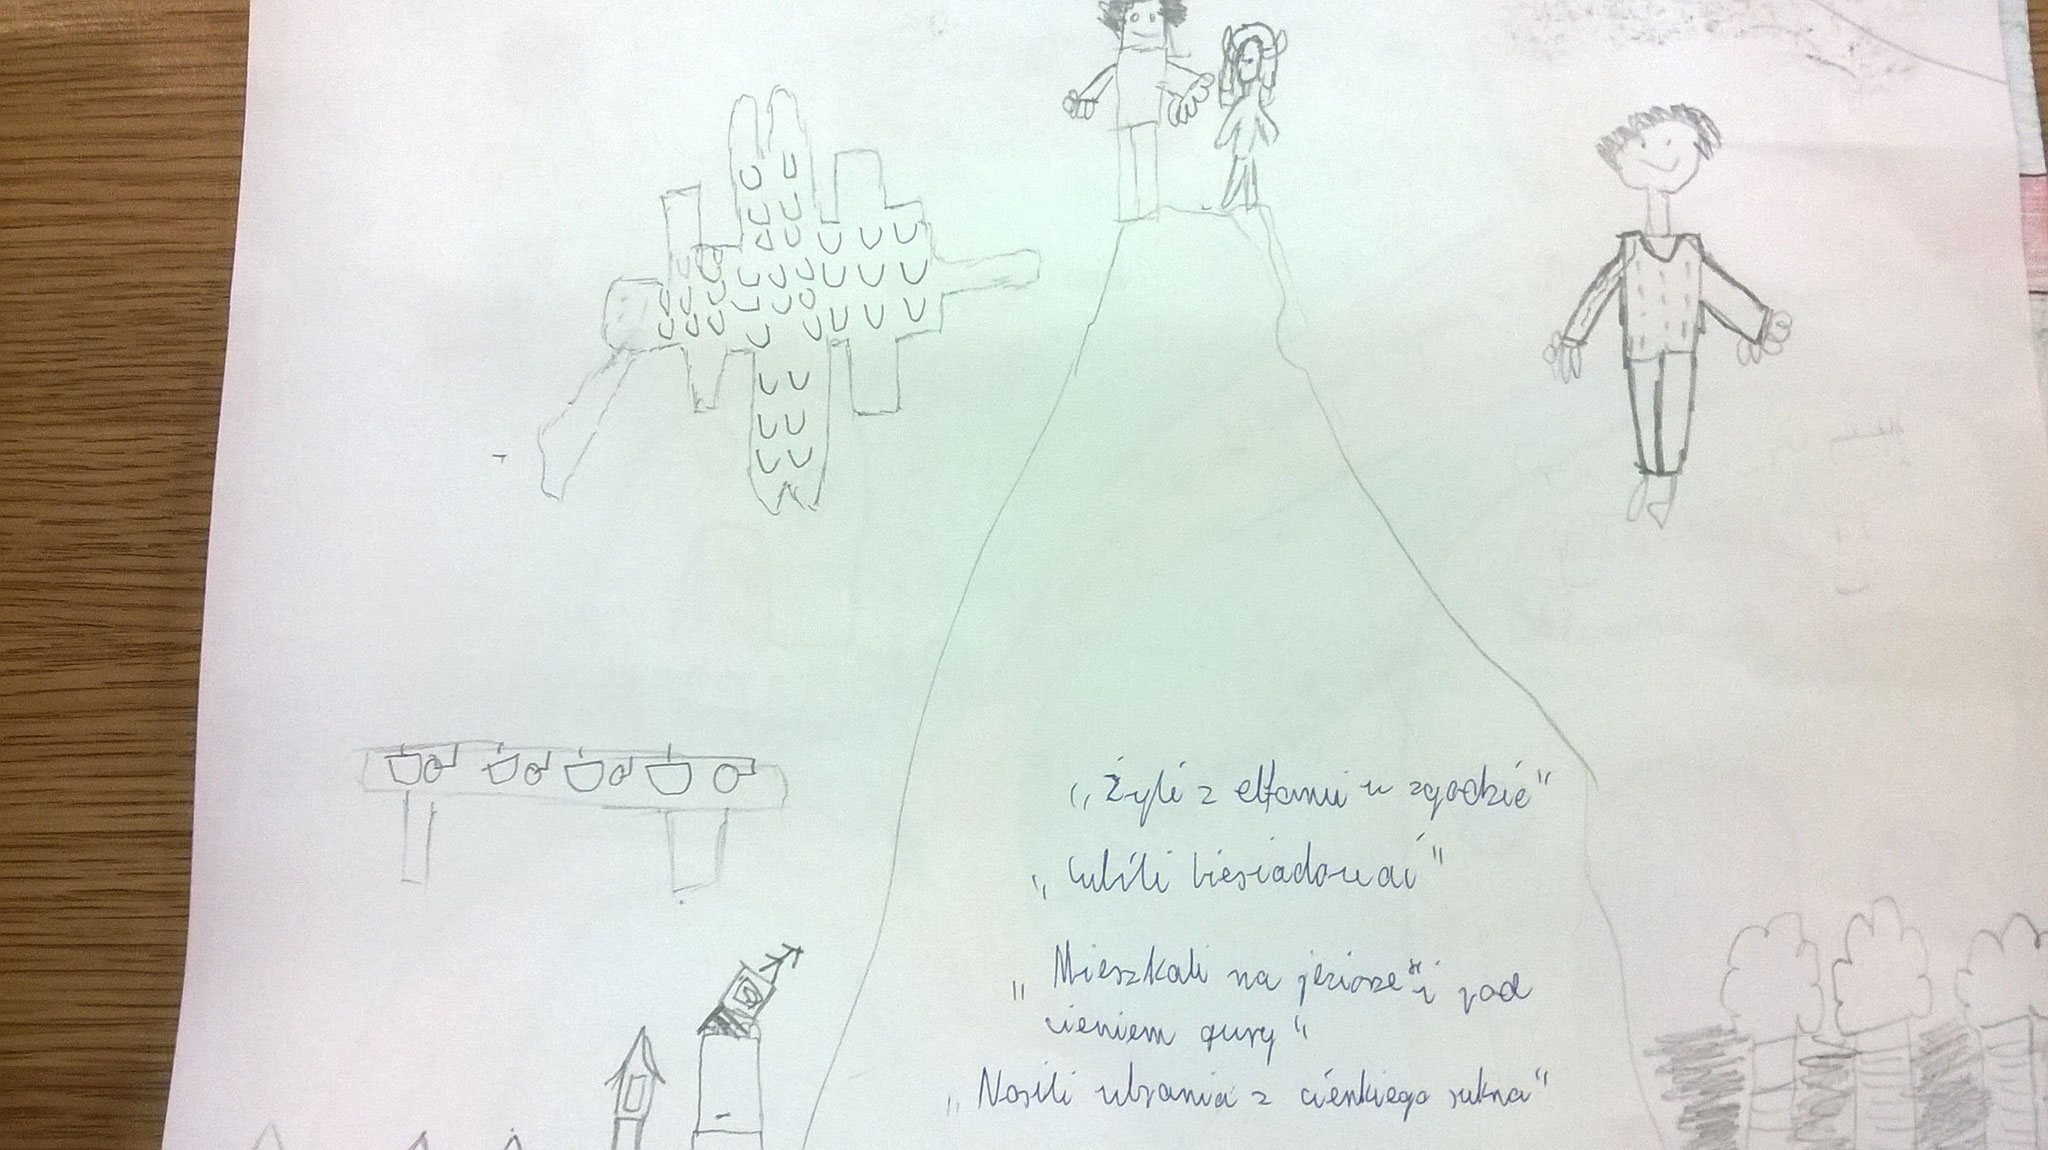 „Żyli z elfami w zgodzie"
„Lubili biesiadować"
„Mieszkali na jeziorze" i pod
cieniem gury"
„Nosili ubrania z cienkiego sukna"